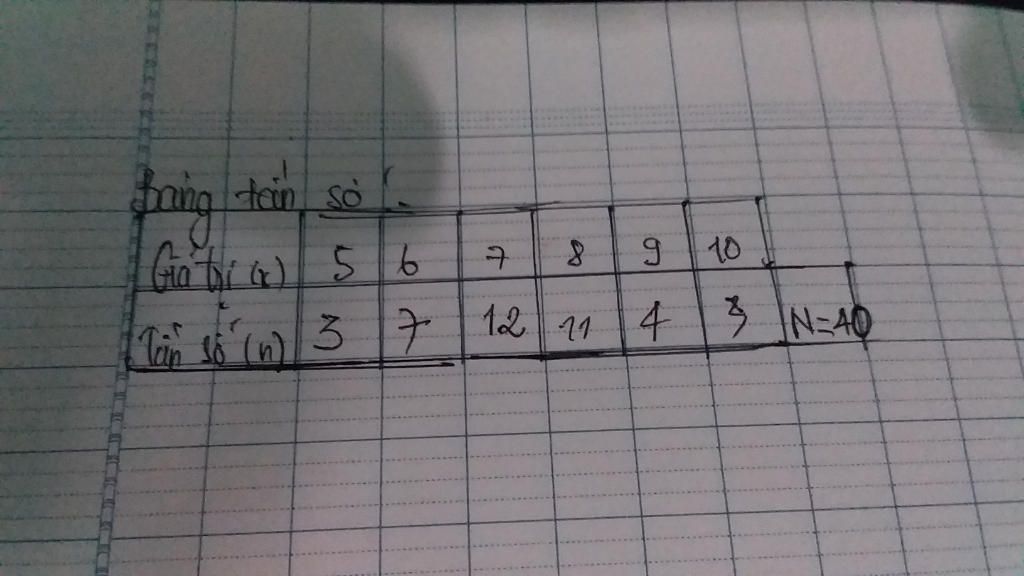 Bảng tần số.
Giá trị (x) 5 6 7 8 9 10
Tần số (n) 3 7 12 11 4 3 N=40